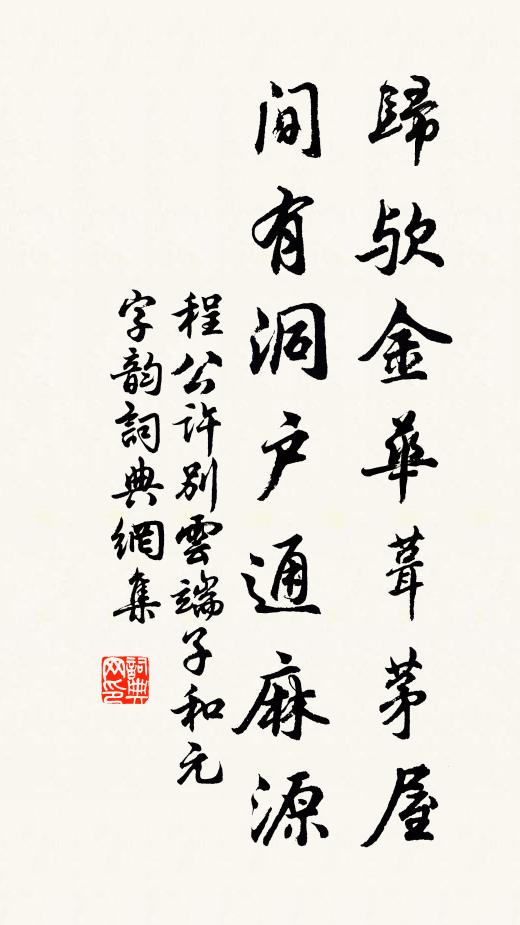 歸欤金華葺茅屋
間有洞户通麻源
程公許别雲端子和元
字韵詞典網集
詞典网印